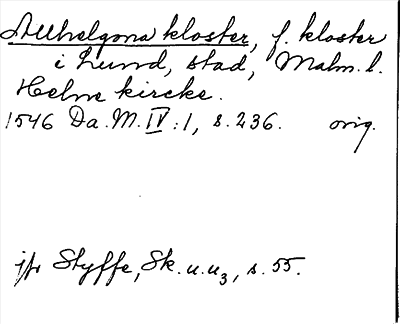 Allhelgona kloster, f. kloster
i Lund, stad, Malm. l.
Helne kircke.
1546 Da. M. IV:1, s. 236. orig.
jfr Styffe, Sk. u. u3, s. 55.